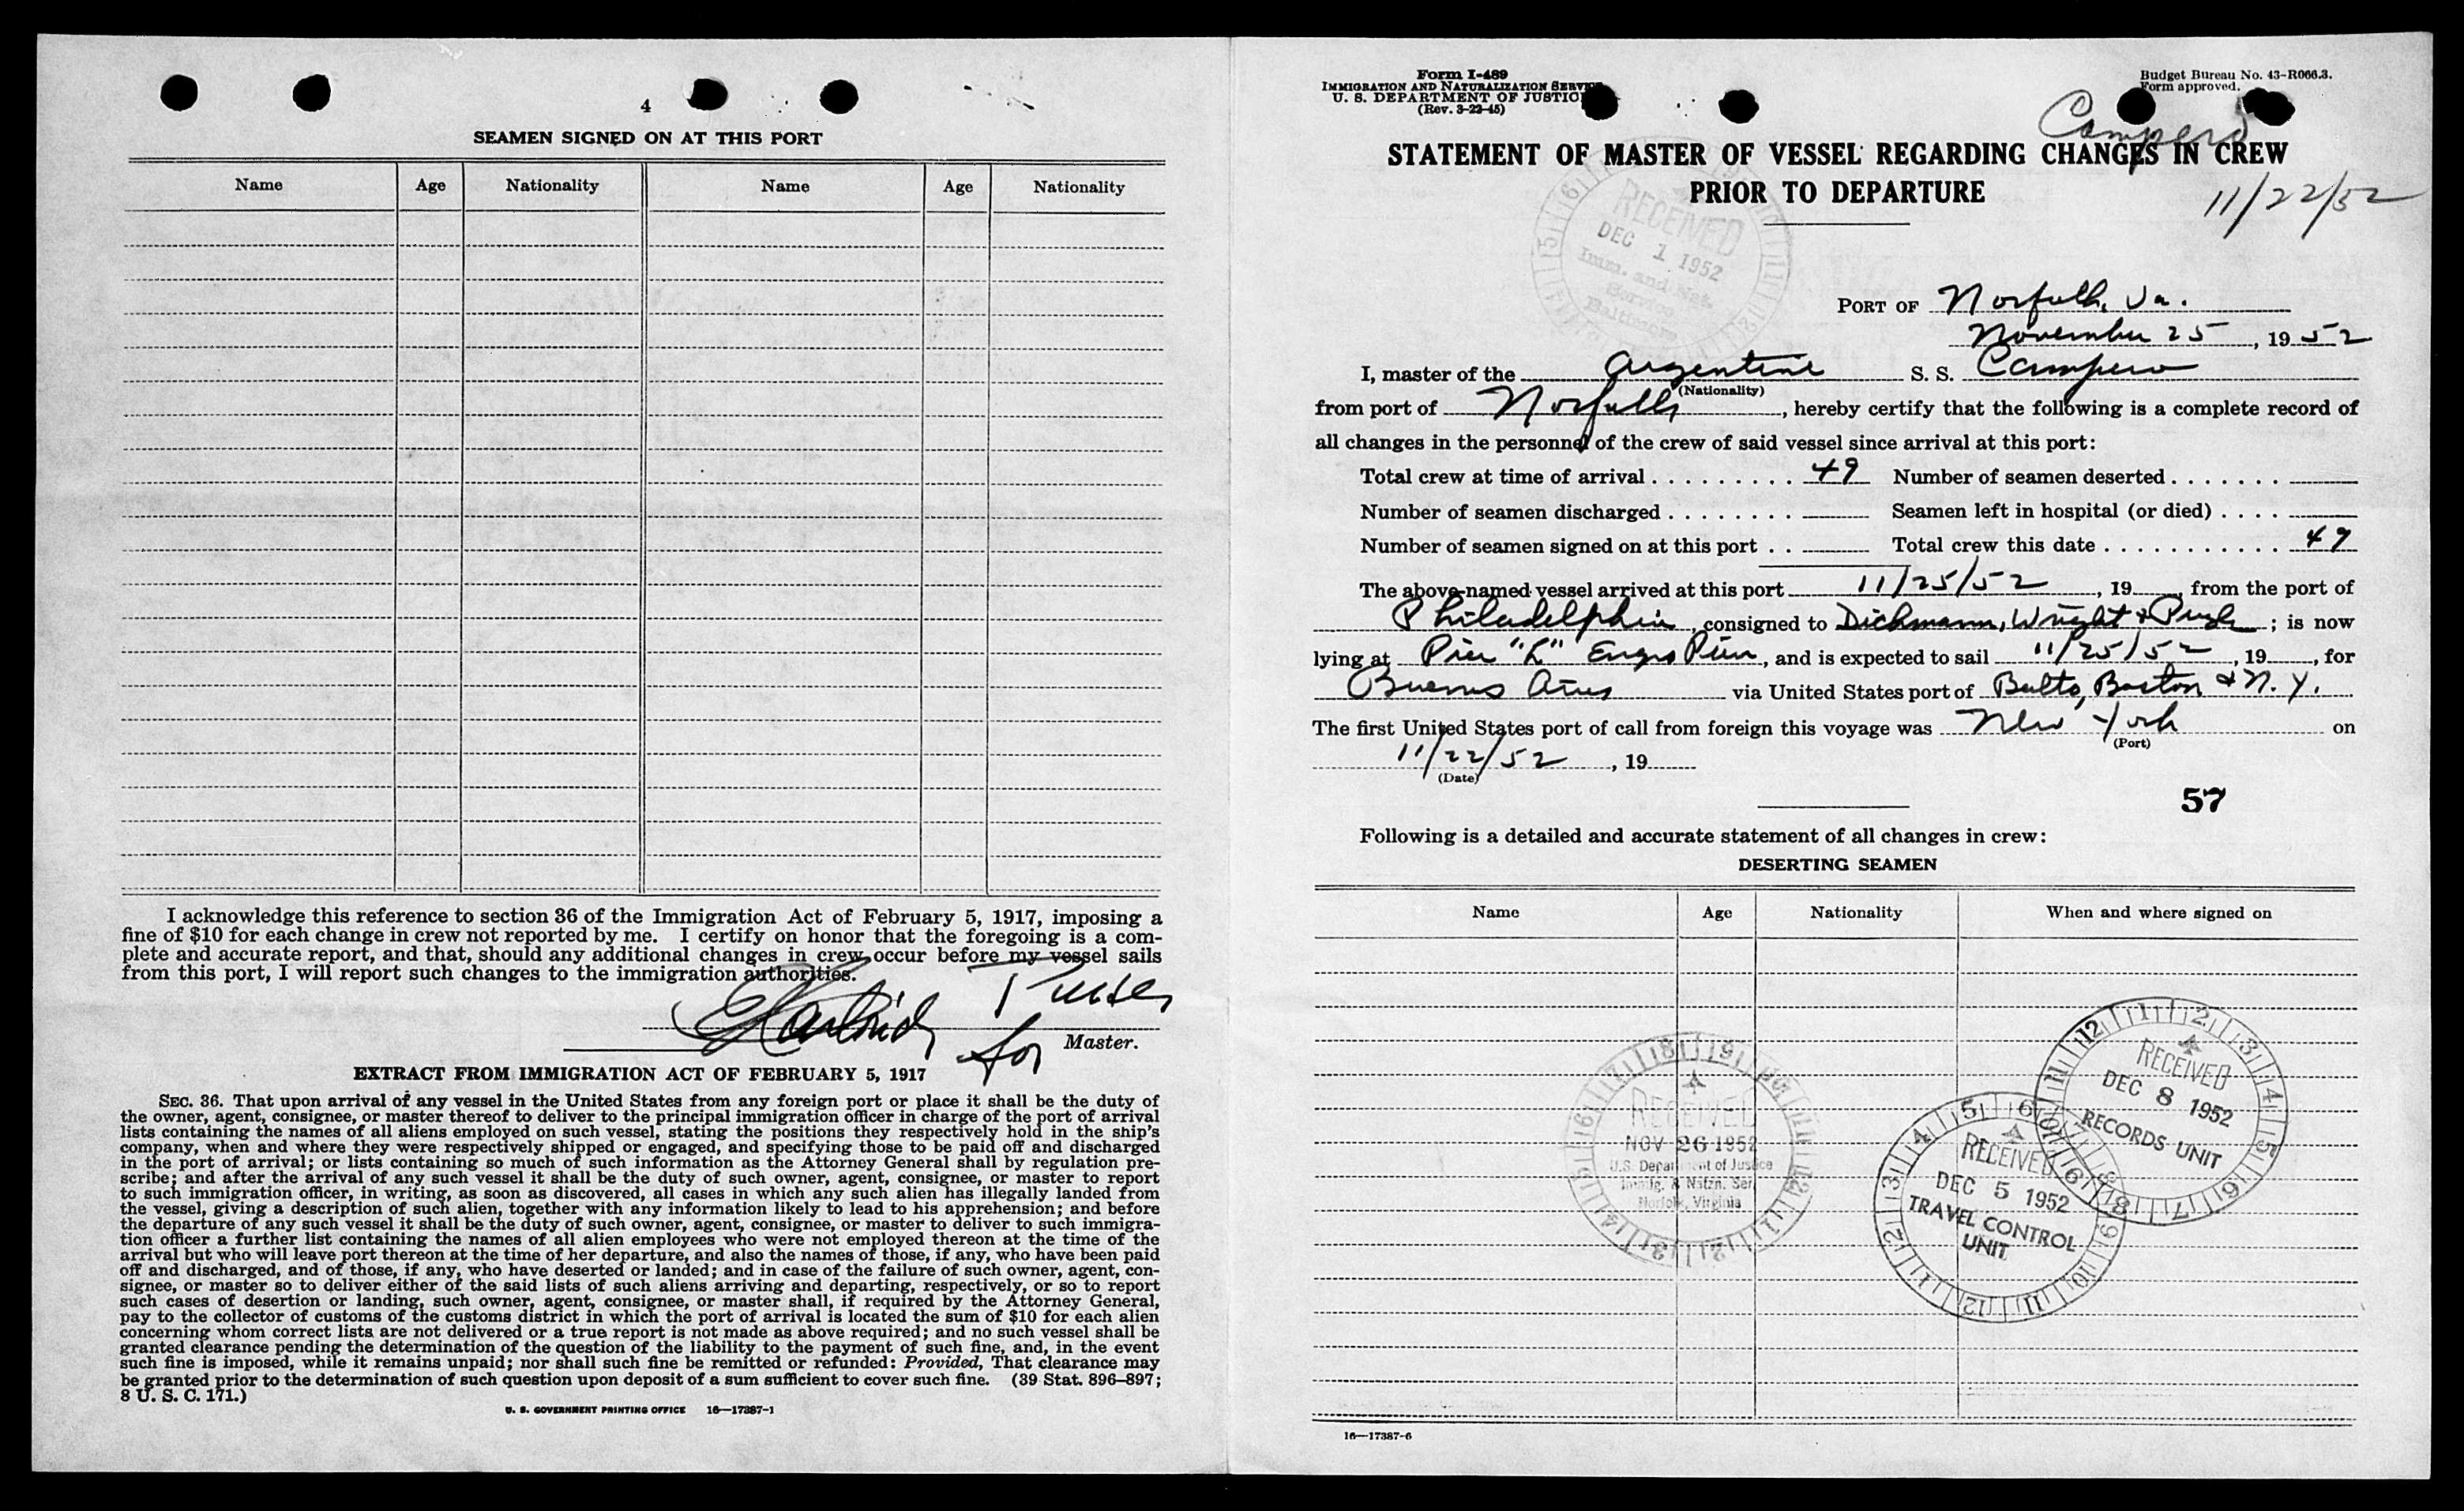 4
SEAMEN SIGNED ON AT THIS PORT
Name Age Nationality Name Age Nationality
I acknowledge this reference to section 36 of the Immigration Act of February 5, 1917, imposing a
fine of $10 for each change in crew not reported by me. I certify on honor that the foregoing is a com-
plete and accurate report, and that, should any additional changes in crew occur before my vessel sails
from this port, I will report such changes to the immigration authorities.
Purser
for Master.
EXTRACT FROM IMMIGRATION ACT OF FEBRUARY 5, 1917
SEC. 36. That upon arrival of any vessel in the United States from any foreign port or place it shall be the duty of
the owner, agent, consignee, or master thereof to deliver to the principal immigration officer in charge of the port of arrival
lists containing the names of all aliens employed on such vessel, stating the positions they respectively hold in the ship's
company, when and where they were respectively shipped or engaged, and specifying those to be paid off and discharged
in the port of arrival; or lists containing so much of such information as the Attorney General shall by regulation pre-
scribe; and after the arrival of any such vessel it shall be the duty of such owner, agent, consignee, or master to report
to such immigration officer, in writing, as soon as discovered, all cases in which any such alien has illegally landed from
the vessel, giving a description of such alien, together with any information likely to lead to his apprehension; and before
the departure of any such vessel it shall be the duty of such owner, agent, consignee, or master to deliver to such immigra-
tion officer a further list containing the names of all alien employees who were not employed thereon at the time of the
arrival but who will leave port thereon at the time of her departure, and also the names of those, if any, who have been paid
off and discharged, and of those, if any, who have deserted or landed; and in case of the failure of such owner, agent, con-
signee, or master so to deliver either of the said lists of such aliens arriving and departing, respectively, or so to report
such cases of desertion or landing, such owner, agent, consignee, or master shall, if required by the Attorney General,
pay to the collector of customs of the customs district in which the port of arrival is located the sum of $10 for each alien
concerning whom correct lists are not delivered or a true report is not made as above required; and no such vessel shall be
granted clearance pending the determination of the question of the liability to the payment of such fine, and, in the event
such fine is imposed, while it remains unpaid; nor shall such fine be remitted or refunded: Provided, That clearance may
be granted prior to the determination of such question upon deposit of a sum sufficient to cover such fine. (39 Stat. 896–897;
8 U. S. C. 171.)
U. S. GOVERNMENT PRINTING OFFICE 16—17387-1
Form I-489
IMMIGRATION AND NATURALIZATION SERVICE
U. S. DEPARTMENT OF JUSTICE
(Rev. 3-22-45)
Budget Bureau No. 43-R066.3.
Form approved.
Campero
STATEMENT OF MASTER OF VESSEL REGARDING CHANGES IN CREW
PRIOR TO DEPARTURE
11/22/52
RECEIVED
DEC 1 1952
Imm. and Nat.
Service
Baltimore
PORT OF Norfolk, Va.
November 25, 1952
I, master of the Argentine S. S. Campero
(Nationality)
from port of Norfolk, hereby certify that the following is a complete record of
all changes in the personnel of the crew of said vessel since arrival at this port:
Total crew at time of arrival . . . . . . . . . 49 Number of seamen deserted . . . . . . .
Number of seamen discharged . . . . . . . . Seamen left in hospital (or died) . . . .
Number of seamen signed on at this port . . Total crew this date . . . . . . . . . . . 49
The above-named vessel arrived at this port 11/25/52, 19, from the port of
Philadelphia, consigned to Dichmann, Wright & Pugh; is now
lying at Pier "L" Engrs Pier, and is expected to sail 11/25/52, 19, for
Buenos Aires via United States port of Balto, Boston & N. Y.
The first United States port of call from foreign this voyage was New York on
(Port)
11/22/52, 19
(Date)
57
Following is a detailed and accurate statement of all changes in crew:
DESERTING SEAMEN
Name Age Nationality When and where signed on
RECEIVED
DEC 8 1952
RECORDS UNIT
RECEIVED
NOV 26 1952
U.S. Department of Justice
Immig. & Natzn. Ser.
Norfolk, Virginia
RECEIVED
DEC 5 1952
TRAVEL CONTROL
UNIT
16—17387-6